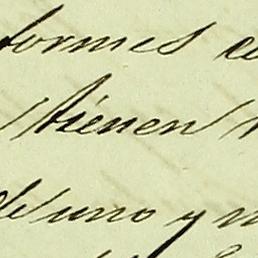 formes
tienen
de uno y